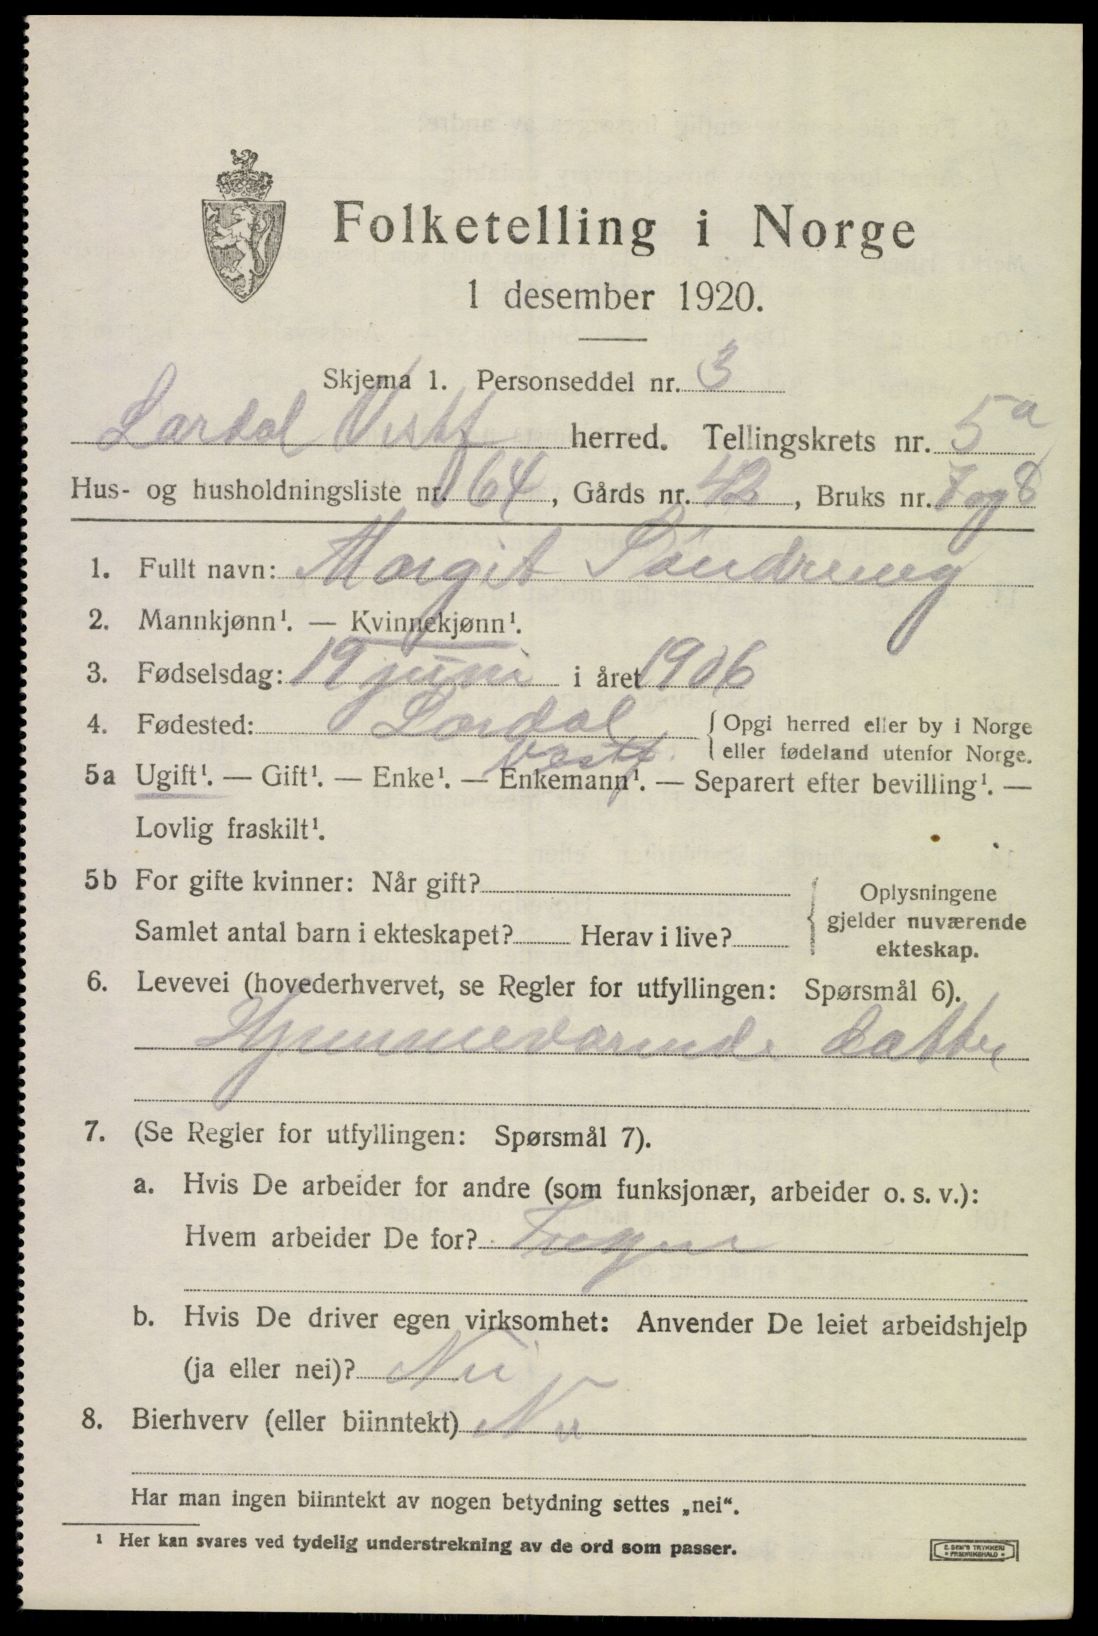 Folketelling i Norge
1 desember 1920.
Skjema 1. Personseddel nr. 3
Lardal Vestf herred. Tellingskrets nr. 5a
Hus- og husholdningsliste nr. 64, Gårds nr. 42, Bruks nr. 7 og 8
1. Fullt navn: Margit Søndreng
2. Mannkjønn¹. — Kvinnekjønn¹.
3. Fødselsdag: 19 juni i året 1906
4. Fødested: Lardal { Opgi herred eller by i Norge
Vestf. eller fødeland utenfor Norge.
5a Ugift¹. — Gift¹. — Enke¹. — Enkemann¹. — Separert efter bevilling¹. —
Lovlig fraskilt¹.
5b For gifte kvinner: Når gift?
Samlet antal barn i ekteskapet? Herav i live?
Oplysningene
gjelder nuværende
ekteskap.
6. Levevei (hovederhvervet, se Regler for utfyllingen: Spørsmål 6).
Hjemmeværende datter
7. (Se Regler for utfyllingen: Spørsmål 7).
a. Hvis De arbeider for andre (som funksjonær, arbeider o. s. v.):
Hvem arbeider De for? Ingen
b. Hvis De driver egen virksomhet: Anvender De leiet arbeidshjelp
(ja eller nei)? Nei
8. Bierhverv (eller biinntekt) Nei
Har man ingen biinntekt av nogen betydning settes „nei“.
¹ Her kan svares ved tydelig understrekning av de ord som passer.
E. SEM'S TRYKKERI
FREDRIKSHALD